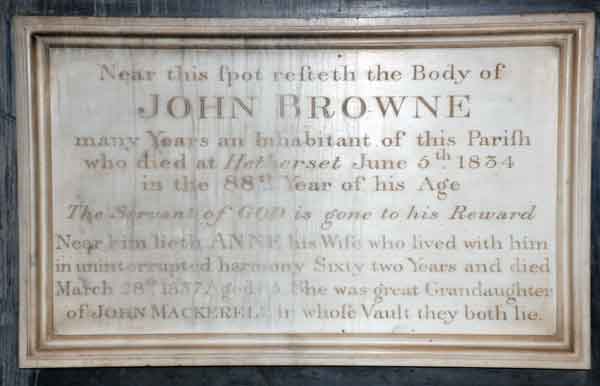 Near this ſpot reſteth the Body of
JOHN BROWNE
many Years an Inhabitant of this Pariſh
who died at Hetherset June 5th 1834
in the 88th Year of his Age
The Servant of GOD is gone to his Reward
Near him lieth ANNE his Wife who lived with him
in uninterrupted harmony Sixty two Years and died
March 28th 1837, Aged She was great Grandaughter
of JOHN MACKERELL in whoſe Vault they both lie.